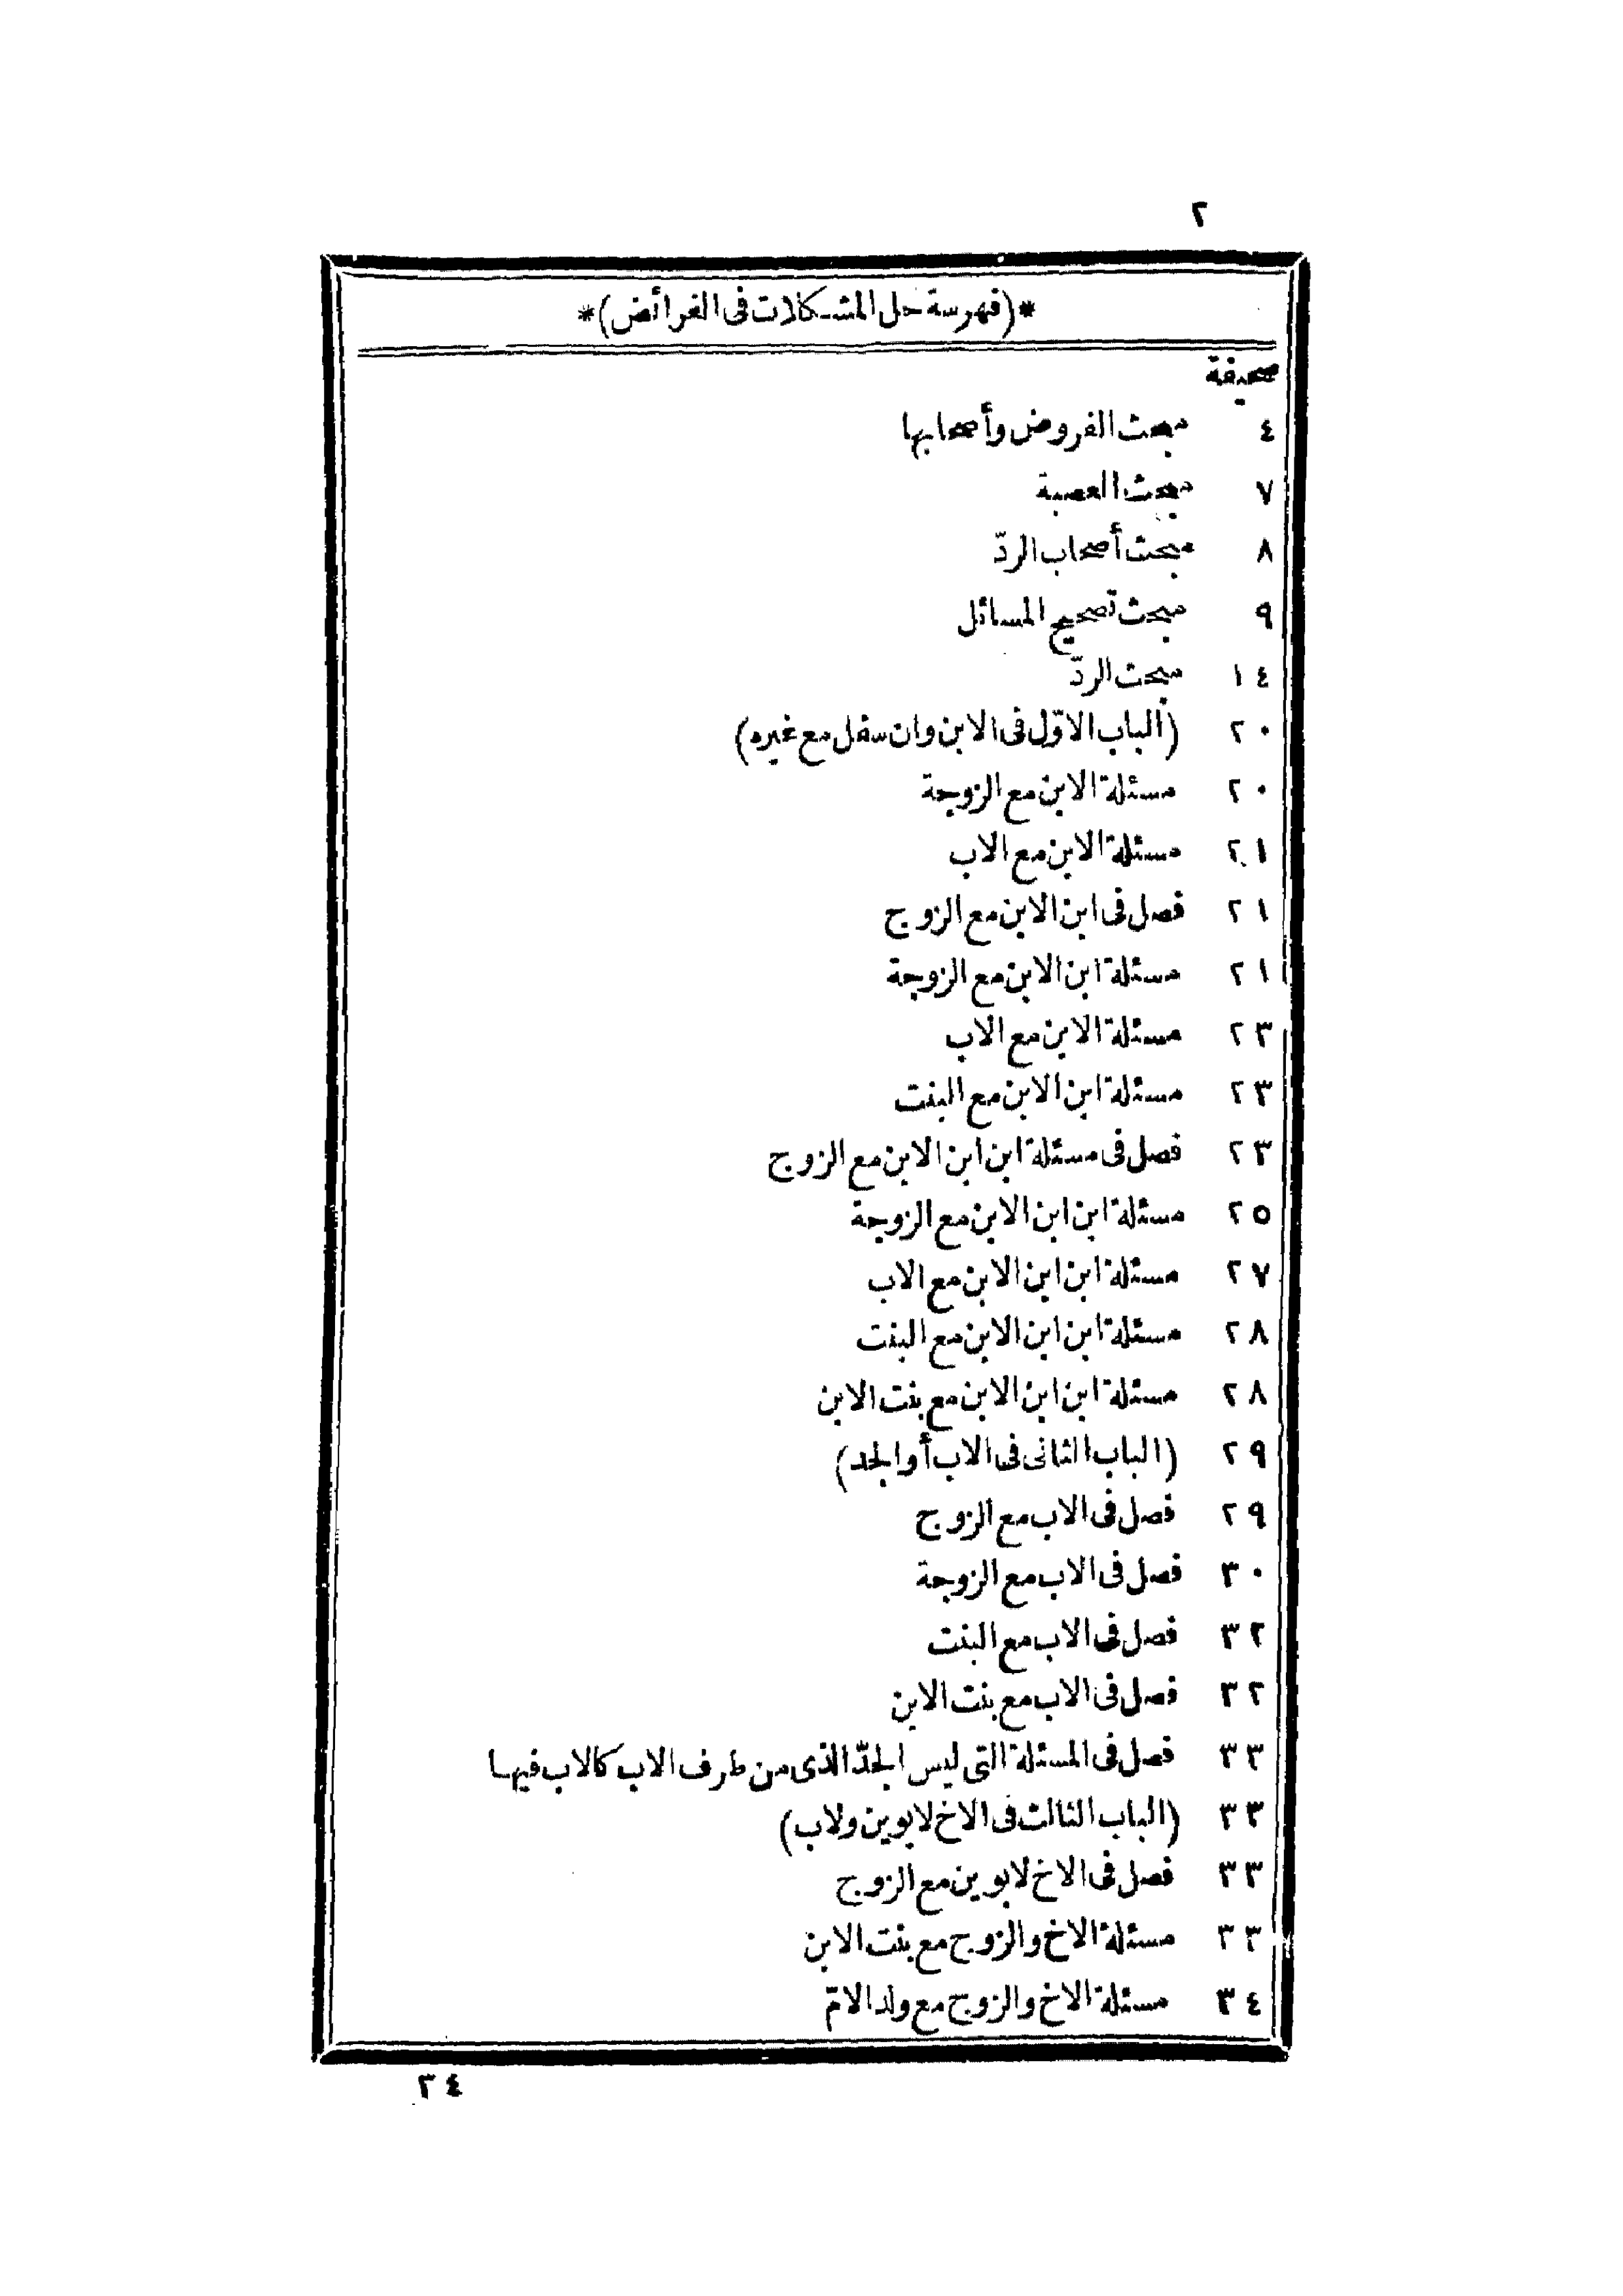 ٢
*(فهرسة حل المشكلات فى الفرائض)*
صحيفة
٤ مبحث الفروض وأصحابها
٧ مبحث العصبة
٨ مبحث أصحاب الردّ
٩ مبحث تصحيح المسائل
١٤ مبحث الردّ
٢٠ (الباب الاوّل فى الابن وان سفل مع غيره)
٢٠ مسئلة الابن مع الزوجة
٢١ مسئلة الابن مع الاب
٢١ فصل فى ابن الابن مع الزوج
٢١ مسئلة ابن الابن مع الزوجة
٢٣ مسئلة الابن مع الاب
٢٣ مسئلة ابن الابن مع البنت
٢٣ فصل فى مسئلة ابن ابن الابن مع الزوج
٢٥ مسئلة ابن ابن الابن مع الزوجة
٢٧ مسئلة ابن ابن الابن مع الاب
٢٨ مسئلة ابن ابن الابن مع البنت
٢٨ مسئلة ابن ابن الابن مع بنت الابن
٢٩ (الباب الثانى فى الاب أو الجد)
٢٩ فصل فى الاب مع الزوج
٣٠ فصل فى الاب مع الزوجة
٣٢ فصل فى الاب مع البنت
٣٢ فصل فى الاب مع بنت الابن
٣٣ فصل فى المسئلة التى ليس الجدّ الذى من طرف الاب كالاب فيها
٣٣ (الباب الثالث فى الاخ لابوين ولاب)
٣٣ فصل فى الاخ لابوين مع الزوج
٣٣ مسئلة الاخ والزوج مع بنت الابن
٣٤ مسئلة الاخ والزوج مع ولد الامّ
٣٤